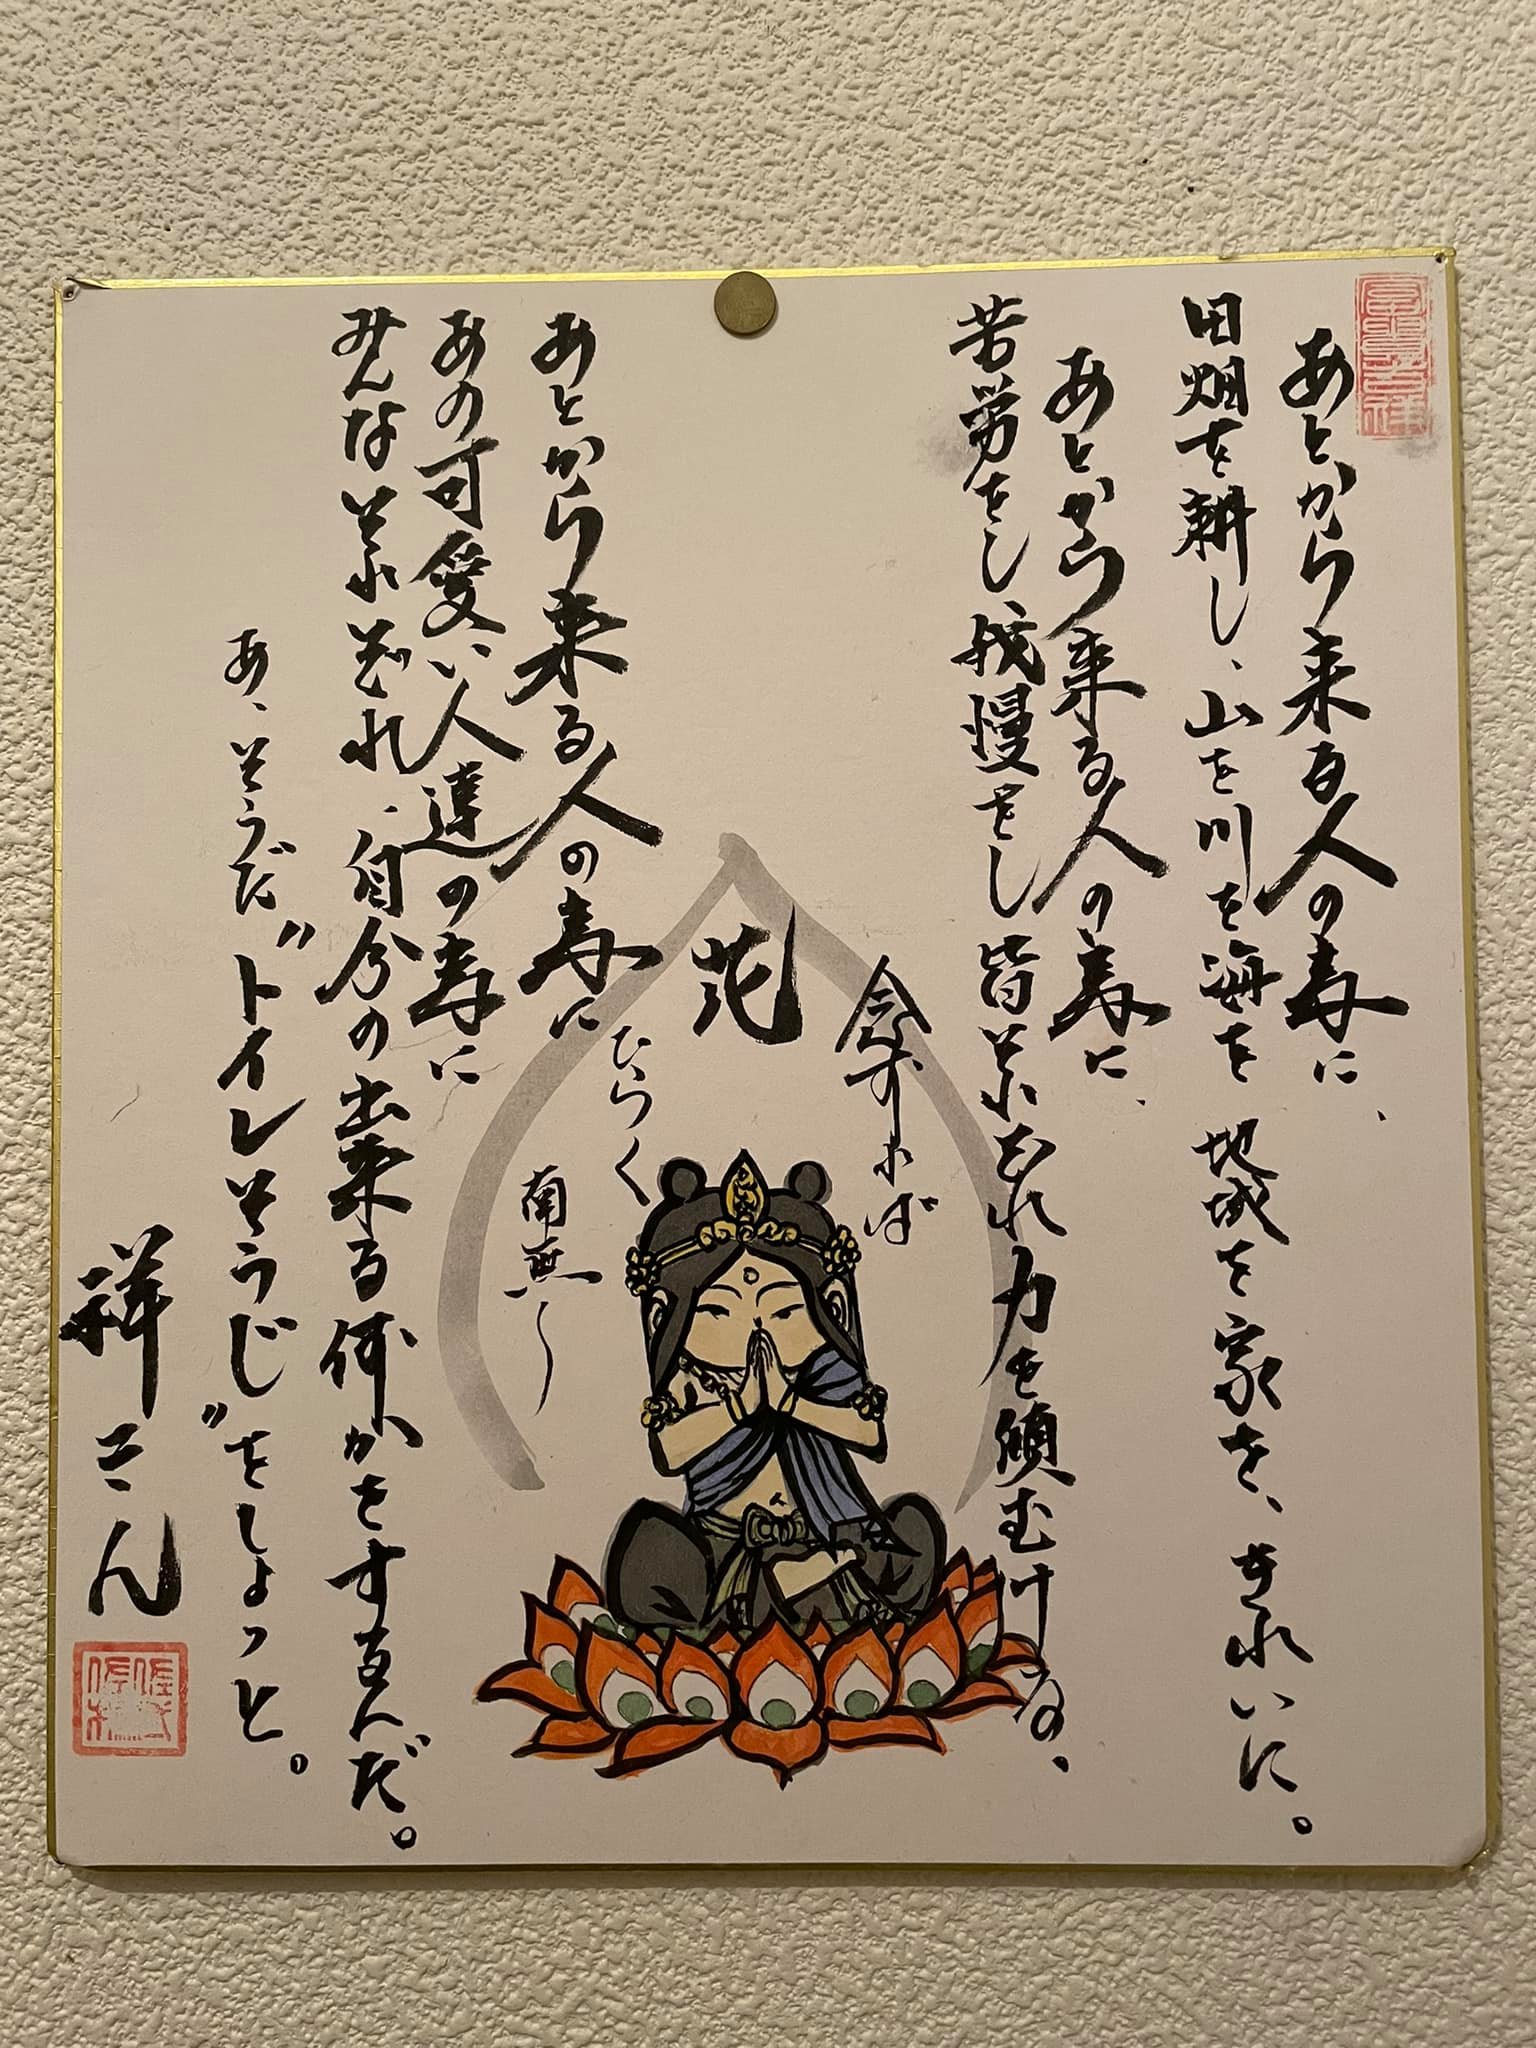 あとから来る人の為に、
田畑を耕し、山を川を海を 地域を家を、きれいに。
あとから来る人の為に、
苦労をし、我慢をし 皆それぞれ力を傾むける、
念ずれば
花
ひらく
南無〜
あとから来る人の為に
あの可愛い人達の為に
みんなそれぞれ、自分の出来る何かをするんだ。
あ、そうだ〝トイレそうじ〟をしよっと。
祥さん